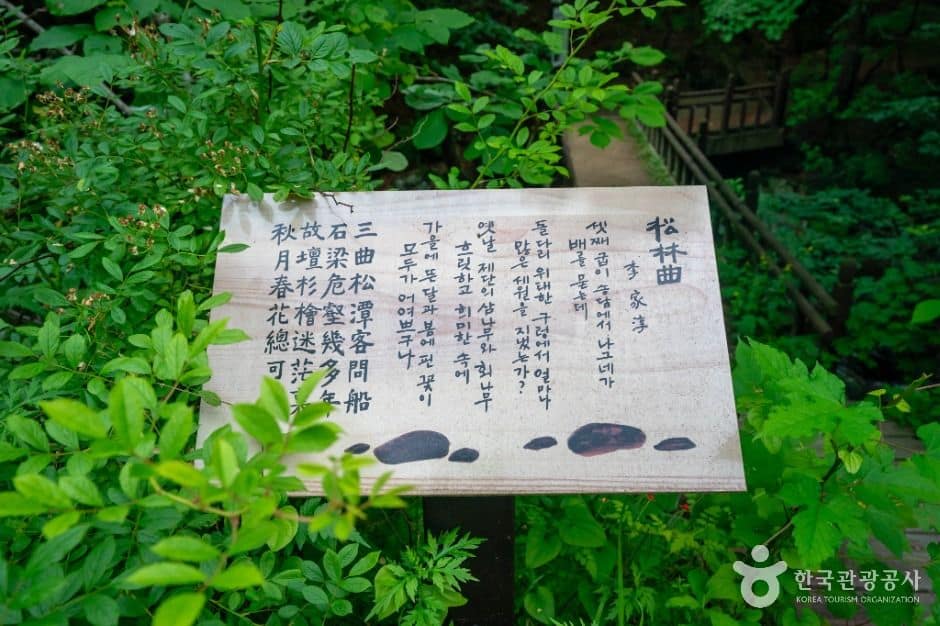 松林曲
李家淳
셋째 굽이 송담에서 나그네가
배를 묻는데
돌다리 위태한 구렁에서 얼마나
많은 세월을 지났는가?
옛날 제단의 삼나무와 회나무
흐릿하고 희미한 속에
가을에 뜬 달과 봄에 핀 꽃이
모두가 어여쁘구나
三曲松潭客問船
石梁危壑幾多年
故壇杉檜迷茫
秋月春花總可
한국관광공사
KOREA TOURISM ORGANIZATION